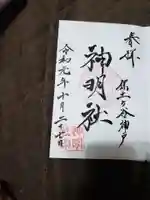 奉拝
保土ヶ谷神戸
神明社
令和元年十月二十七日